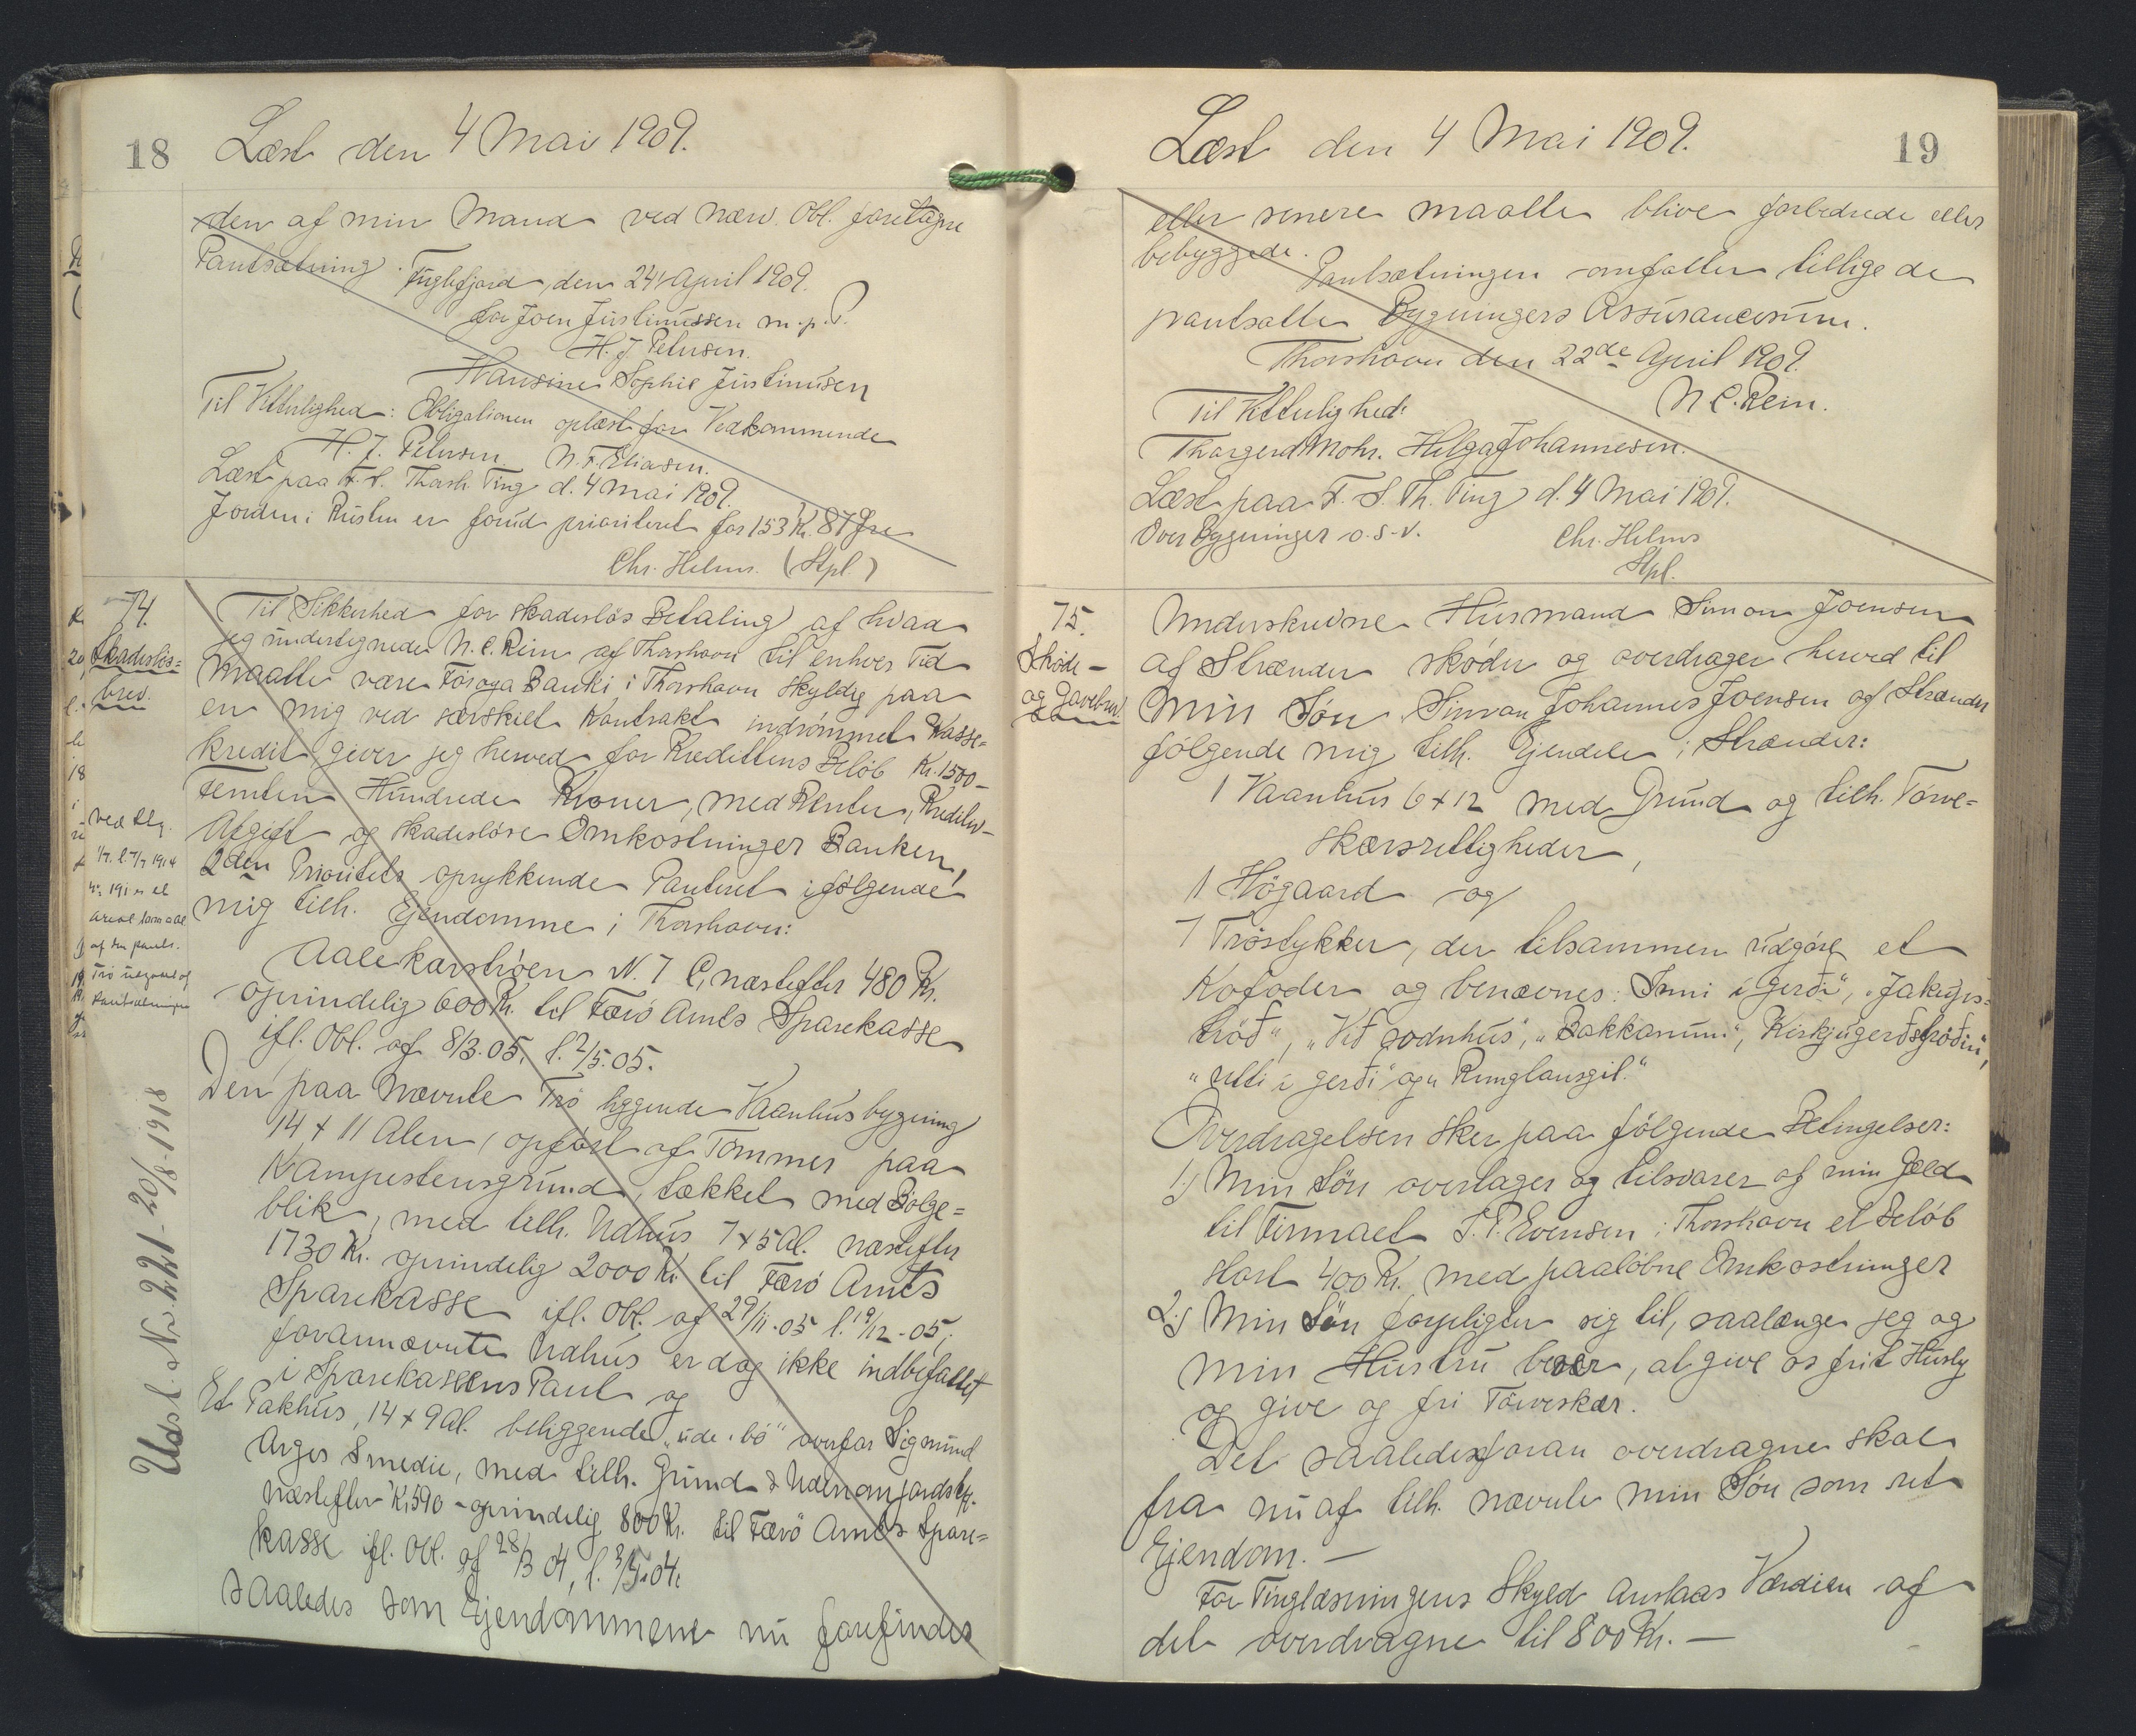 18 Læst den 4 Mai 1909.
den af min Mand ved nærv. Obl. foretagne
Pantsætning.
Fuglefjord, den 24 April 1909.
for Joen Justinussen m. p. P.
H. J Petersen.
Hansine Sophie Justinusen
Til Vitterlighed: Obligationen oplæst for Vedkommende
H. J. Petersen. N. F. Eliasen.
Læst paa F. S. Thorsh. Ting d. 4 Mai 1909.
Jorden i Rusten er forud prioriteret for 153 Kr. 87 Øre
Chr. Helms. (Stpl.)
74.
Skadesløs=
brev.
Til Sikkerhed for skadesløs Betaling af hvad
jeg undertegnede N. C. Rein af Thorshavn til enhver Tid
maatte være Föroya Banki i Thorshavn skyldig paa
en mig ved særskilt Kontrakt indrømmet Kasse=
kredit giver jeg herved for Kredittens Beløb Kr. 1500 -
Femten Hundrede Kroner, med Renter,
Afgift og skadesløse Omkostninger Banken,
2den Prioritets oprykkende Panteret i følgende
mig tilh. Ejendomme i Thorshavn:
N. 7 C, næstefter 480 Kr.
oprindelig 600 Kr. til Færö Amts Sparekasse
ifl. Obl. af 8/3. 05, l. 2/5. 05.
Den paa nævnte Trö liggende Vaanhusbygning
14 x 11 Alen, opført af Tømmer paa
Kampestensgrund, tækket med Bølge=
blik, med tilh. Udhus 7 x 5 Al. næstefter
1730 Kr. oprindelig 2000 Kr til Færö Amts
Sparekasse ifl. Obl. af 29/11. 05 l. 19/12 - 05;
forannævnte Udhus er dog ikke indbefattet
i Sparekassens Pant og
Et Pakhus, 14 x 9 Al. beliggende „ude i bö“ overfor Sigmund
Arges Smedie, med tilh. Grund &
næstefter Kr. 590 - oprindelig 800 Kr. til Færö Amts Spare=
kasse ifl. Obl. af 28/3 04, l. 3/5. 04.
saaledes som Ejendommene nu forefindes
ved
1/7. l. 7/7 1914
er et
areal
af den pants.
Trö udgaaet af
Pantsætningen
Udsl. Nr. 221 - 20/8-1918
Læst den 4 Mai 1909. 19
eller senere maatte blive forbedrede eller
bebyggede.
Pantsætningen omfatter tillige de
pantsatte Bygningers Assurancesum.
Thorshavn den 22de April 1909.
N C. Rein.
Til Vitterlighed:
Thorgerd Mohr. Helga Johannesen.
Læst paa F. S. Th. Ting d. 4 Mai 1909.
Over Bygninger o. s. v. Chr. Helms
Stpl.
75.
Skøde -
og Gavebrev.
Underskrevne Husmand Simon Joensen
af Strænder skøder og overdrager herved til
min Søn Simon Johannes Joensen af Strænder
følgende mig tilh. Ejendele i Strænder:
1 Vaanhus 6 x 12 med Grund og tilh. Törve=
skærsrettigheder,
1 Högaard og
7 Tröstykker, der tilsammen udgøre et
Kofoder og benævnes: „Inni i gerði“, „Jakups=
tröð“, „Við sodnhus“, „Bakkanum“, Kirkjugerðströðin“,
„Utti i gerði“ og „Runglansgil.“
Overdragelsen sker paa følgende Betingelser:
1.) Min Søn overtager og tilsvarer af min Gæld
til Firmaet J. P. Evensen i Thorshavn et Beløb
stort 400 Kr. med paaløbne Omkostninger
2.) Min Søn forpligter sig til, saalænge jeg og
min Hustru lever, at give os frit Husly
og give og fri Törveskær.
Det saaledes foran overdragne skal
fra nu af tilh. nævnte min Søn som ret
Ejendom. —
For Tinglæsningens Skyld anslaas Værdien af
det overdragne til 800 Kr. —